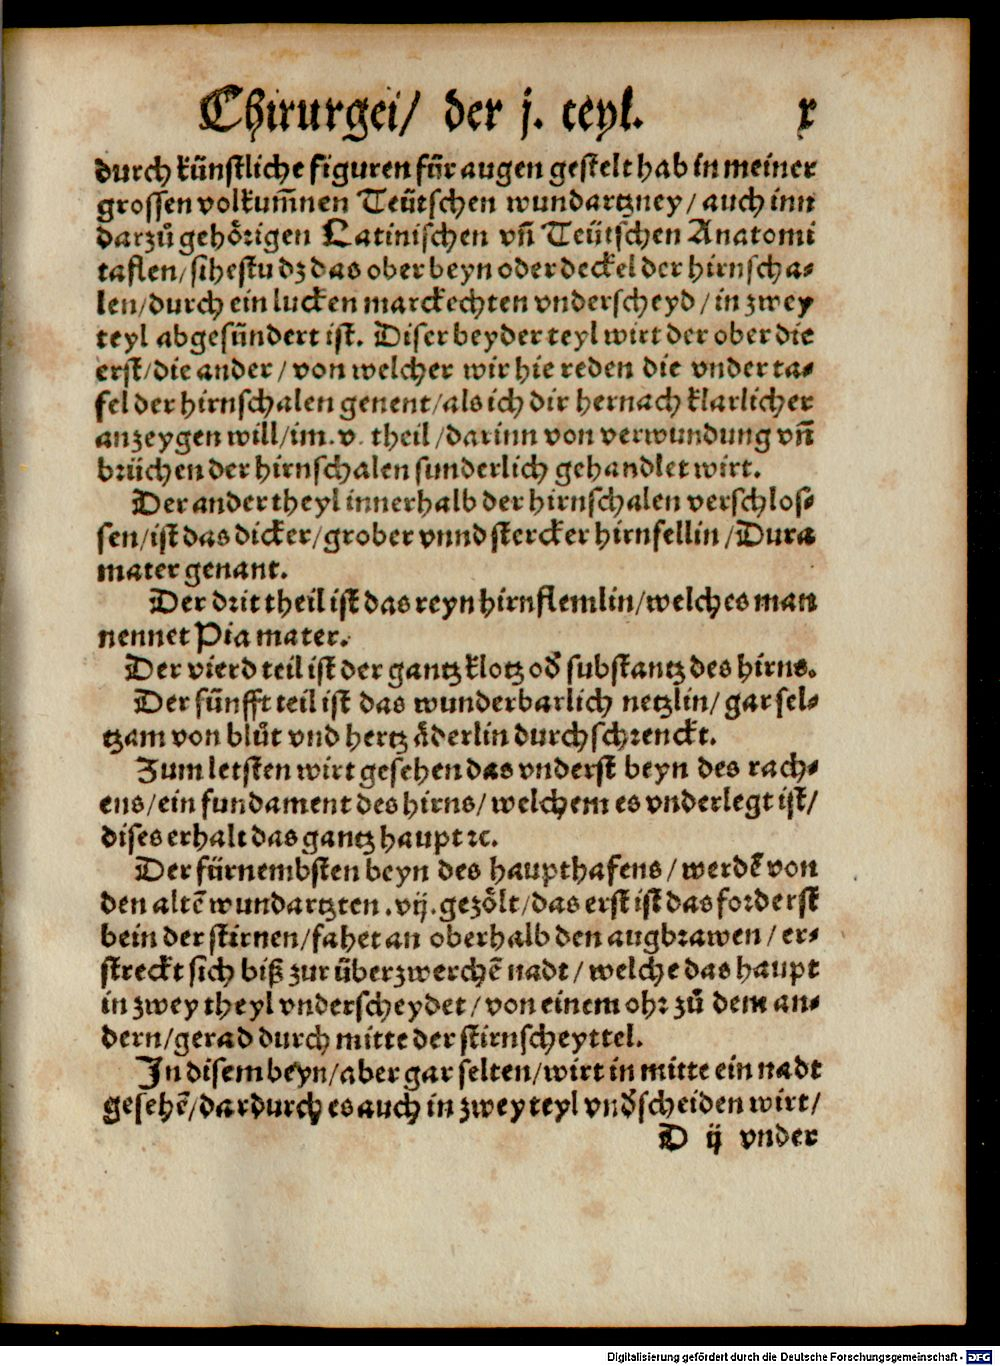 Chirurgei/ der j. teyl. x
durch künstliche figuren für augen gestelt hab in meiner
grossen volkum̃nen Teütschen wundartzney/ auch inn
darzů gehörigen Latinischen vñ Teütschen Anatomi
taflen/ sihestu dz das ober beyn oder deckel der hirnscha⸗
len/ durch ein lucken marckechten vnderscheyd/ in zwey
teyl abgesündert ist. Diser beyder teyl wirt der ober die
erst/ die ander/ von welcher wir hie reden die vnder ta⸗
fel der hirnschalen genent/ als ich dir hernach klarlicher
anzeygen will/ im .v. theil/ darinn von verwundung vñ
brüchen der hirnschalen sunderlich gehandlet wirt.
Der ander theyl innerhalb der hirnschalen verschlos⸗
sen/ ist das dicker/ grober vnnd stercker hirnfellin/ Dura
mater genant.
Der drit theil ist das reyn hirnflemlin/ welches man
nennet Pia mater.
Der vierd teil ist der gantz klotz od̕ substantz des hirns.
Der fünfft teil ist das wunderbarlich netzlin/ gar sel⸗
tzam von blůt vnd hertz åderlin durchschrenckt.
Zum letsten wirt gesehen das vnderst beyn des rach⸗
ens/ ein fundament des hirns/ welchem es vnderlegt ist/
dises erhalt das gantz haupt ꝛc.
Der fürnembsten beyn des haupthafens/ werdẽ von
den altẽ wundartzten .vij. gezölt/ das erst ist das forderst
bein der stirnen/ fahet an oberhalb den augbrawen/ er⸗
streckt sich biß zur überzwerchẽ nadt/ welche das haupt
in zwey theyl vnderscheydet/ von einem ohr zů dem an⸗
dern/ gerad durch mitte der stirnscheyttel.
In disem beyn/ aber gar selten/ wirt in mitte ein nadt
gesehẽ/ dardurch es auch in zwey teyl vnd̕scheiden wirt/
D ij vnder
Digitalisierung gefördert durch die Deutsche Forschungsgemeinschaft - DFG